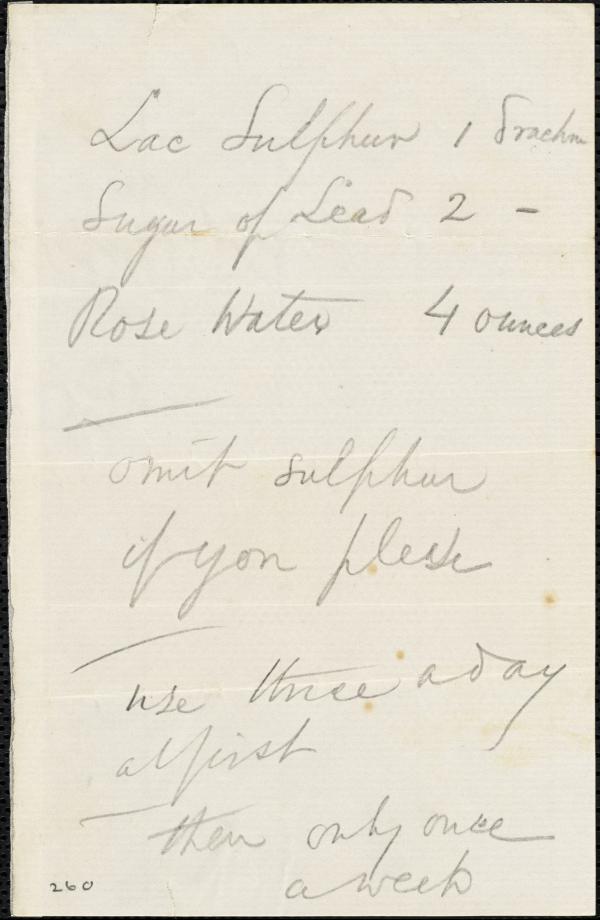 Lac Sulphur 1 drachm
Sugar of Lead 2 -
Rose Water 4 ounces
omit sulphur
if you please
use thrice a day
at first
then only once
a week
260